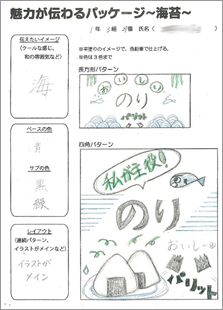 魅力が伝わるパッケージ~海苔~
1年3組 番 氏名(
伝えたいイメージ
(クールな感じ、
和の雰囲気など)
海
ベースの色
青
サブの色
黒
緑
レイアウト
(連続パターン、
イラストがメインなど)
イラストが
メイン
※平塗りのイメージで、色鉛筆で仕上げる。
※色は3色まで
長方形パターン
おいしい
のり
パリット
四角パターン
私が主役!
のり
おいしーい
パリット